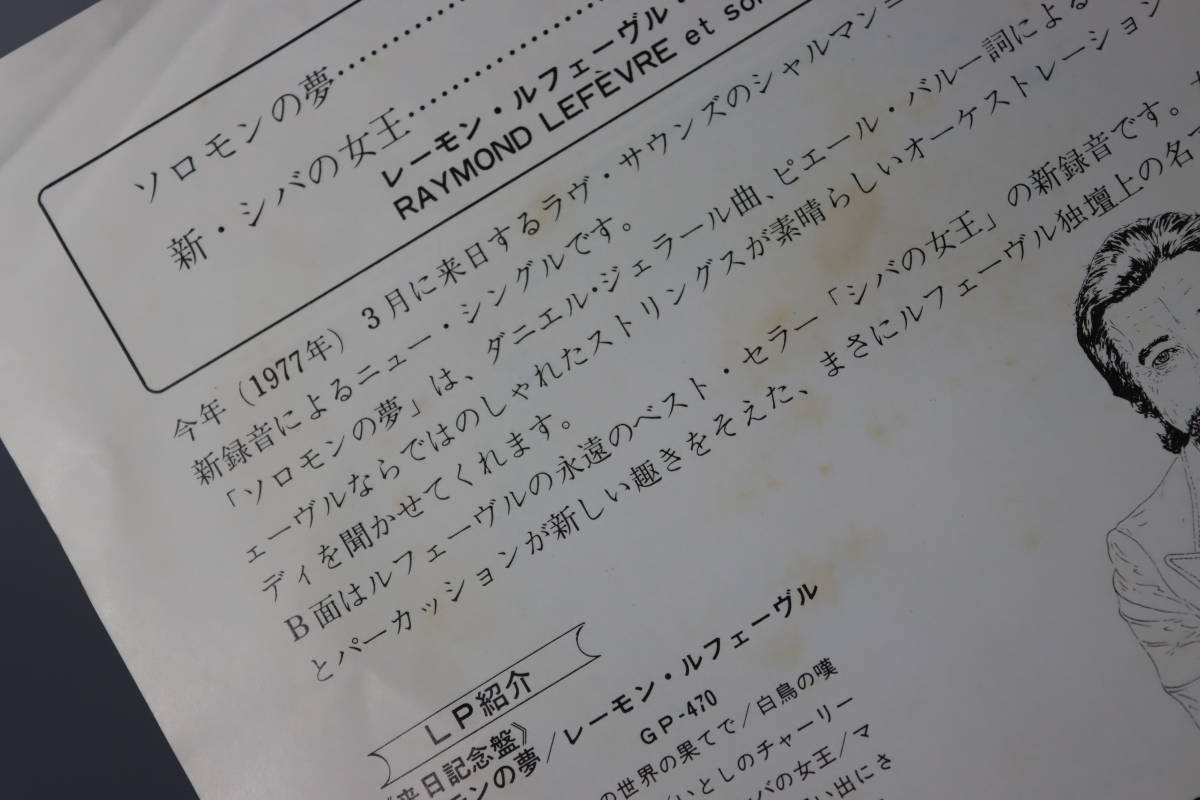 ソロモンの夢……………
新・シバの女王……………
レーモン・ルフェーヴル
RAYMOND LEFÈVRE et son
今年（1977年）3月に来日するラヴ・サウンズのシャルマン
新録音によるニュー・シングルです。
「ソロモンの夢」は、ダニエル・ジェラール曲、ピエール・バルー詞による
ェーヴルならではのしゃれたストリングスが素晴らしいオーケストレーション
ディを聞かせてくれます。
B面はルフェーヴルの永遠のベスト・セラー「シバの女王」の新録音です。
とパーカッションが新しい趣きをそえた、まさにルフェーヴル独壇上の名
LP紹介
来日記念盤》
モンの夢/レーモン・ルフェーヴル
GP-470
の世界の果てで/白鳥の嘆
いとしのチャーリー
バの女王/マ
い出にさ